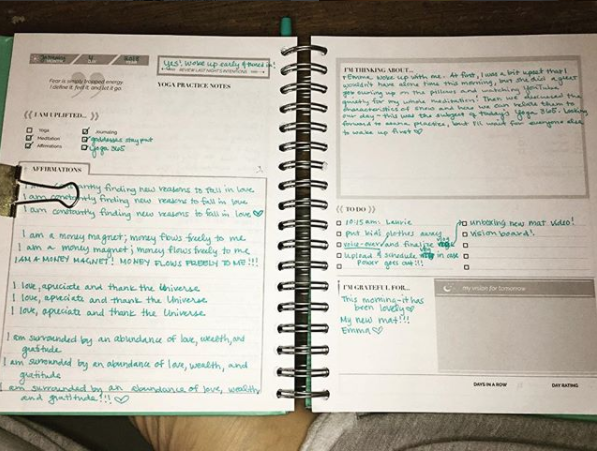 Yes! Woke up early & tuned in!
REVIEW LAST NIGHT'S INTENTIONS
Fear is simply trapped energy
I define it, feel it, and let it go.
YOGA PRACTICE NOTES
I AM UPLIFTED...
Yoga
Journaling
Meditation
goddesses stay put
Affirmations
Yoga 365
AFFIRMATIONS
I am constantly finding new reasons to fall in love
I am constantly finding new reasons to fall in love
I am constantly finding new reasons to fall in love ♡
I am a money magnet; money flows freely to me
I am a money magnet; money flows freely to me
I AM A MONEY MAGNET! MONEY FLOWS FREELY TO ME!!!
I love, apreciate and thank the Universe
I love, apreciate and thank the Universe
I love, apreciate and thank the Universe
I am surrounded by an abundance of love, wealth, and
gratitude
I am surrounded by an abundance of love, wealth, and
gratitude
I am surrounded by an abundance of love, wealth
and gratitude!!! ♡
I'M THINKING ABOUT...
Emma woke up with me - At first, I was a bit upset that I
wouldn't have alone time this morning, but she did a great
job curling up on the pillows and watching YouTube
quietly for my whole meditation! Then we discussed the
characteristics of snow and how we can relate them to
our day - this was the subject of today's Yoga 365. Looking
forward to asana practice, but I'll wait for everyone else
to wake up first ♡
TO DO
10:15am: Laurie
put kids clothes away
voice-over and finalize vlog
upload & schedule vlog in case
power goes out!!!
unboxing new mat video!
vision board!
I'M GRATEFUL FOR...
This morning - it has
been lovely
My new mat!!!
Emma ♡
my vision for tomorrow
DAYS IN A ROW
DAY RATING